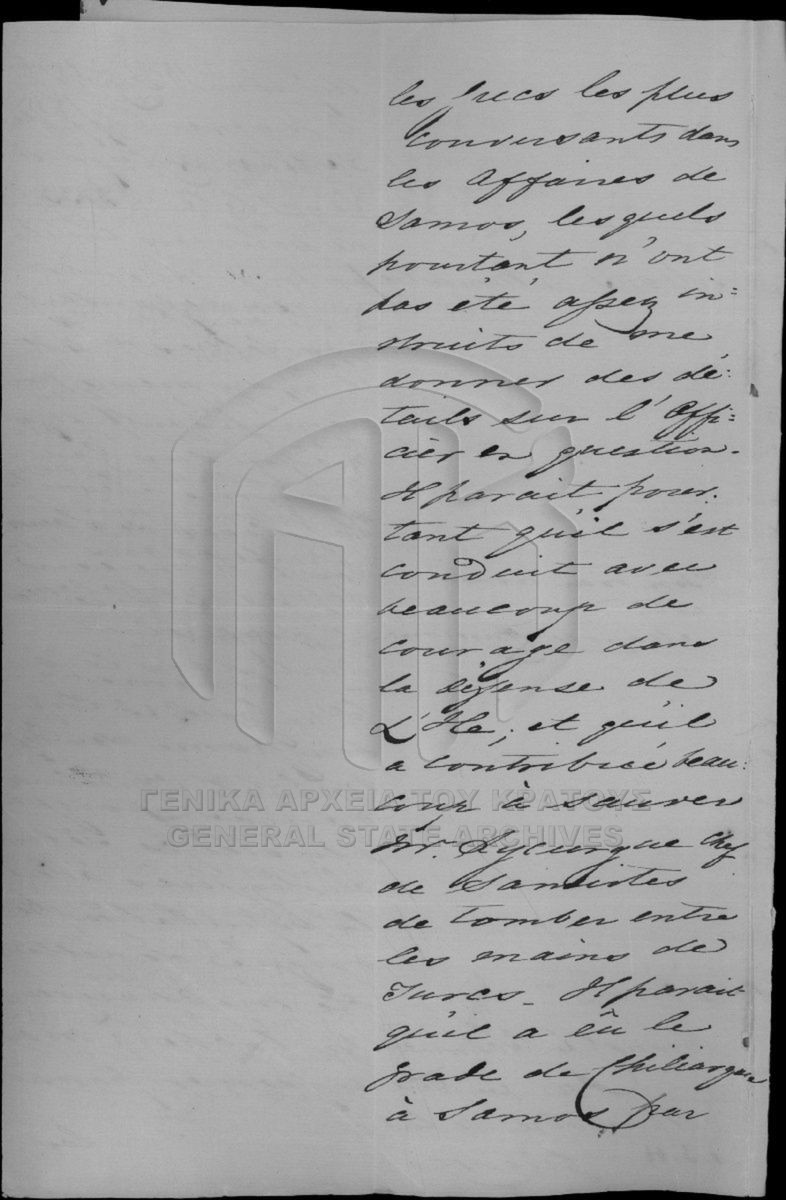 les Grecs les plus
conversants dans
les Affaires de
Samos, lesquels
pourtant n'ont
pas été assez in=
struits de me
donner des dé=
tails sur l'Offi=
cier en question.
Il parait pour=
tant qu'il s'est
conduit avec
beaucoup de
courage dans
la défense de
L'Ile; et qu'il
a contribué beau=
coup à sauver
Mr. Lycurgue Chef
de Samiotes
de tomber entre
les mains de
Turcs. Il parait
qu'il a êu le
grade de Chiliarque
à Samos par
ΓΕΝΙΚΑ ΑΡΧΕΙΑ ΤΟΥ ΚΡΑΤΟΥΣ
GENERAL STATE ARCHIVES